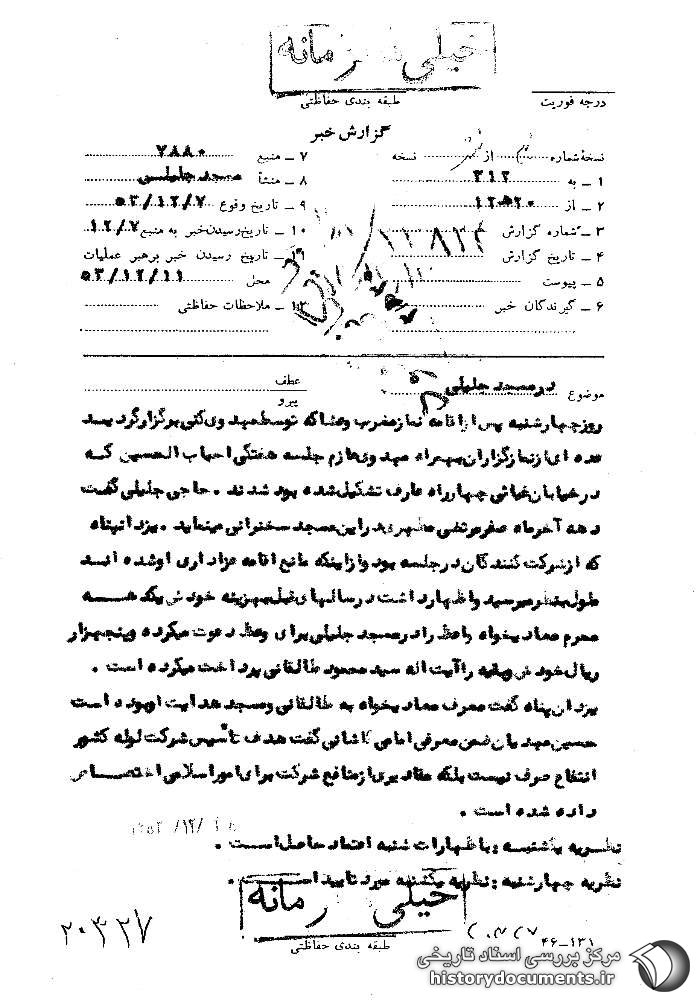 خیلی محرمانه
طبقه بندی حفاظتی
درجه فوریت
گزارش خبر
نسخهٔ شماره از نسخه
۱ ــ به ۳۱۲
۲ ــ از ۲۰ ﻫ ۱۲
۳ ــ شماره گزارش
۴ ــ تاریخ گزارش
۵ ــ پیوست
۶ ــ گیرندگان خبر
۷ ــ منبع ۷۸۸۰
۸ ــ منشأ مسجد جلیلی
۹ ــ تاریخ وقوع ۵۳/۱۲/۷
۱۰ ــ تاریخ رسیدن خبر به منبع ۱۲/۷
۱۱ ــ تاریخ رسیدن خبر برهبر عملیات
محل ۵۳/۱۲/۱۱
۱۲ ــ ملاحظات حفاظتی
موضوع در مسجد جلیلی
عطف
پیرو
روز چهارشنبه پس از اقامه نماز مغرب و عشا که توسط مهدوی کنی برگزار گردید
عده ای از نمازگزاران بهمراه مهدوی عازم جلسه هفتگی احباب الحسین که
در خیابان غیاثی چهارراه عارف تشکیل شده بود شدند . حاجی جلیلی گفت
دهه آخر ماه صفر مرتضی مطهری در این مسجد سخنرانی مینماید . یزدانپناه
که از شرکت کنندگان در جلسه بود و از اینکه مانع اقامه عزاداری او شده اند
ملول بنظر میرسید و اظهار داشت در سالهای قبل بهزینه خودش یکدهه
محرم معادیخواه واعظ را در مسجد جلیلی برای وعظ دعوت میکرده و پنجهزار
ریال خودش و بقیه را آیت اله سید محمود طالقانی پرداخت میکرده است .
یزدان پناه گفت معرف معادیخواه به طالقانی و مسجد هدایت او بوده است
حسین مهدیان ضمن معرفی امامی کاشانی گفت هدف تأسیس شرکت لوله کشور
انتفاع صرف نیست بلکه مقادیری از منافع شرکت برای امور اسلامی اختصاص
داده شده است .
نظریه یکشنبه : باظهارات شنبه اعتماد حاصل است .
نظریه چهارشنبه : نظریه یکشنبه مورد تایید است .
خیلی محرمانه
طبقه بندی حفاظتی
۲۰۳۲۷
۴۶-۱۳۱
مرکز بررسی اسناد تاریخی
historydocuments.ir